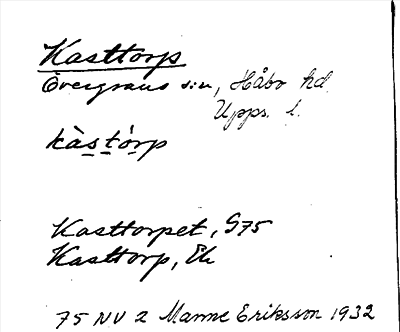 Kasttorp
Övergrans sn, Håbo hd
Upps. l.
kàstórp
Kasttorpet, G75
Kasttorp, Ek
75 NV 2 Manne Eriksson 1932